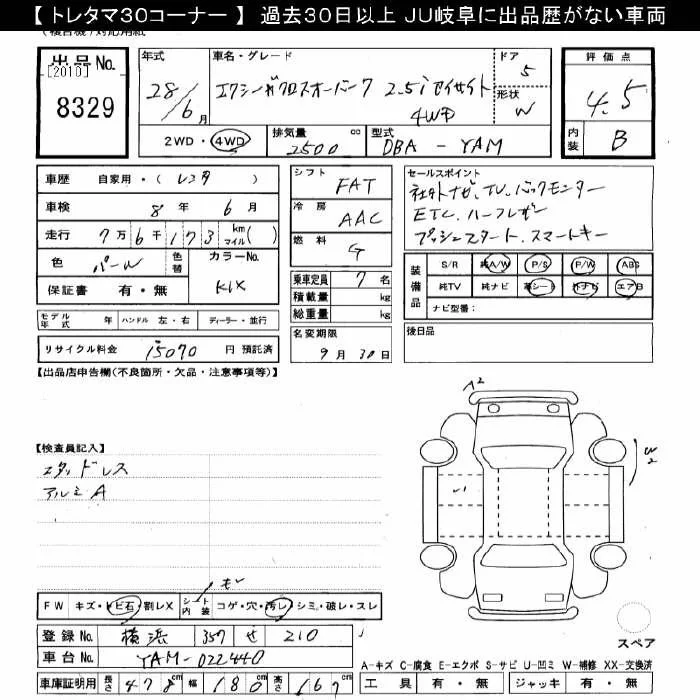 【 トレタマ30コーナー 】 過去30日以上 JU岐阜に出品歴がない車両
出品No.
【2010】
8329
年式
28/6月
車名・グレード
エクシーガクロスオーバー7 2.5i アイサイト
4WD
ドア
5
形状
W
評価点
4.5
内装
B
2WD・4WD
排気量
2500
cc
型式
DBA - YAM
車歴 自家用・( レンタ )
車検 8 年 6 月
走行 7万6千173 km マイル( )
色 パール 色替
カラーNo.
K1X
保証書 有・無
モデル年式 年 ハンドル 左・右 ディーラー・並行
リサイクル料金 15070 円 預託済
シフト FAT
冷房 AAC
燃料 G
乗車定員 7 名
積載量 kg
総重量 kg
名変期限
9月30日
セールスポイント
社外ナビ、TV、バックモニター
ETC、ハーフレザー
プッシュスタート、スマートキー
装備品
S/R 純A/W P/S P/W ABS
純TV 純ナビ 革シート 外ナビ エアB
ナビ型番:
後日品
【出品店申告欄(不良箇所・欠品・注意事項等)】
【検査員記入】
スタッドレス
アルミA
A2
W2
モレ
FW キズ・トビ石・割レX シート内装 コゲ・穴・汚レ・シミ・破レ・スレ
登録No. 横浜 357 せ 210
車台No. YAM-022440
車庫証明用 長さ 478 cm 幅 180 cm 高さ 167 cm
スペア
A-キズ C-腐食 E-エクボ S-サビ U-凹ミ W-補修 XX-交換済
工具 有・無 ジャッキ 有・無